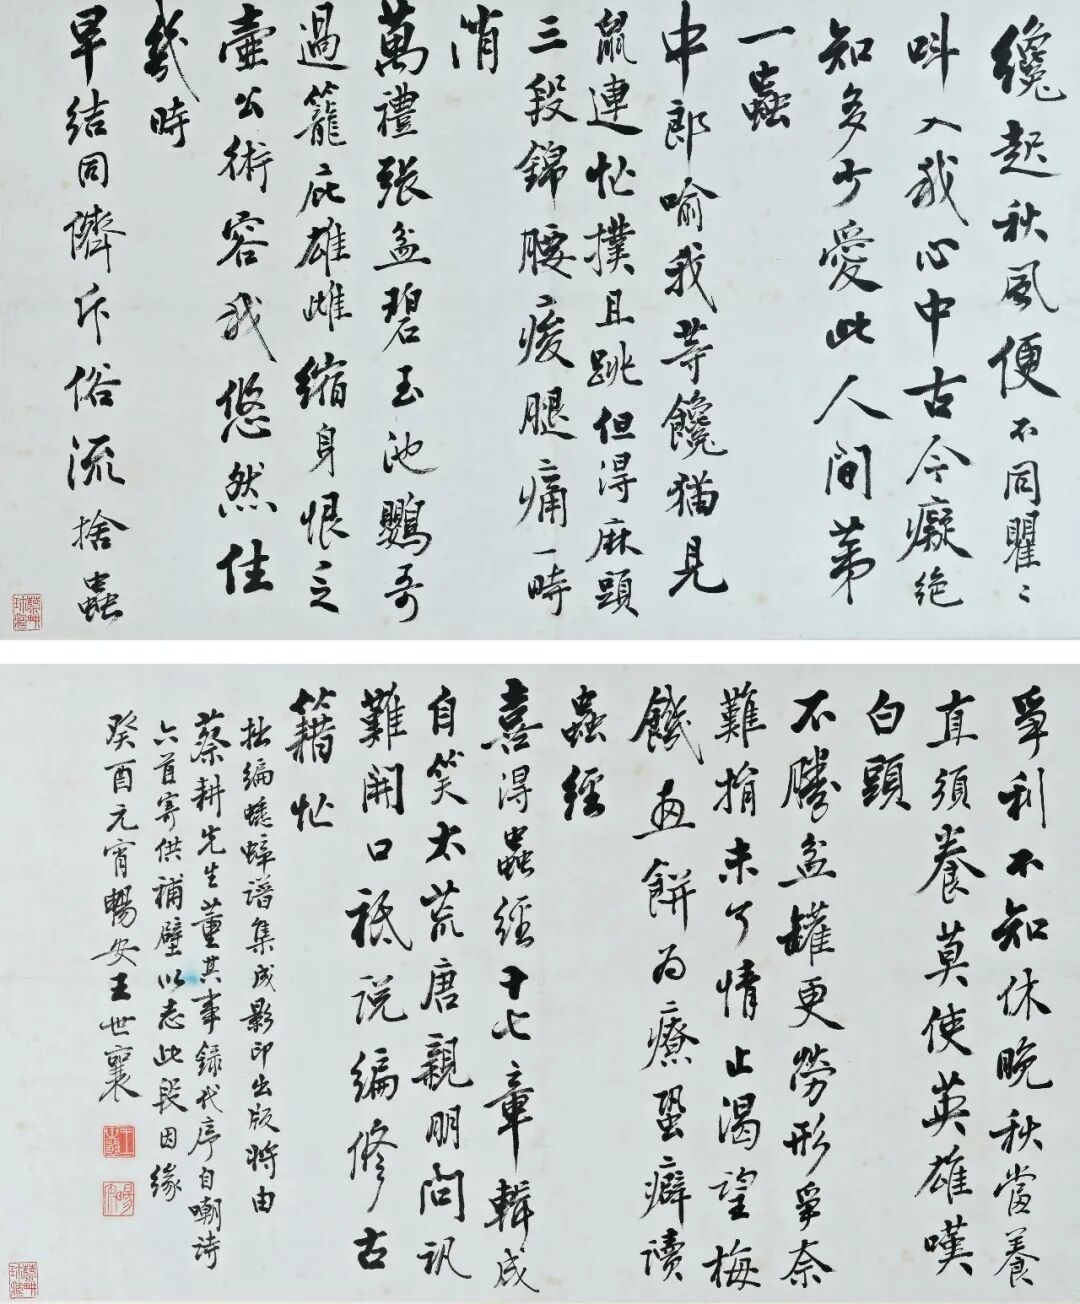 纔起秋風便不同瞿〻
叫入我心中古今癡絕
知多少愛此人間第
一蟲
中郎喻我等饞猫見
鼠連忙撲且跳但得麻頭
三段錦腰痠腿痛一時
消
萬禮張盆碧玉池鸚哥
過籠庇雄雌縮身恨乏
壺公術容我悠然住
幾時
早結同儕斥俗流捨蟲
爭利不知休晚秋當養
直須養莫使英雄嘆
白頭
不勝盆罐更勞形爭奈
難捐未了情止渴望梅
饑畫餅為療蛩癖讀
蟲經
喜得蟲經十七章輯成
自笑太荒唐親朋問訊
難開口祗説編修古
籍忙
拙編蟋蟀譜集成影印出版將由
蔡耕先生董其事録代序自嘲詩
六首寄供補壁以志此段因緣
癸酉元宵暢安王世襄